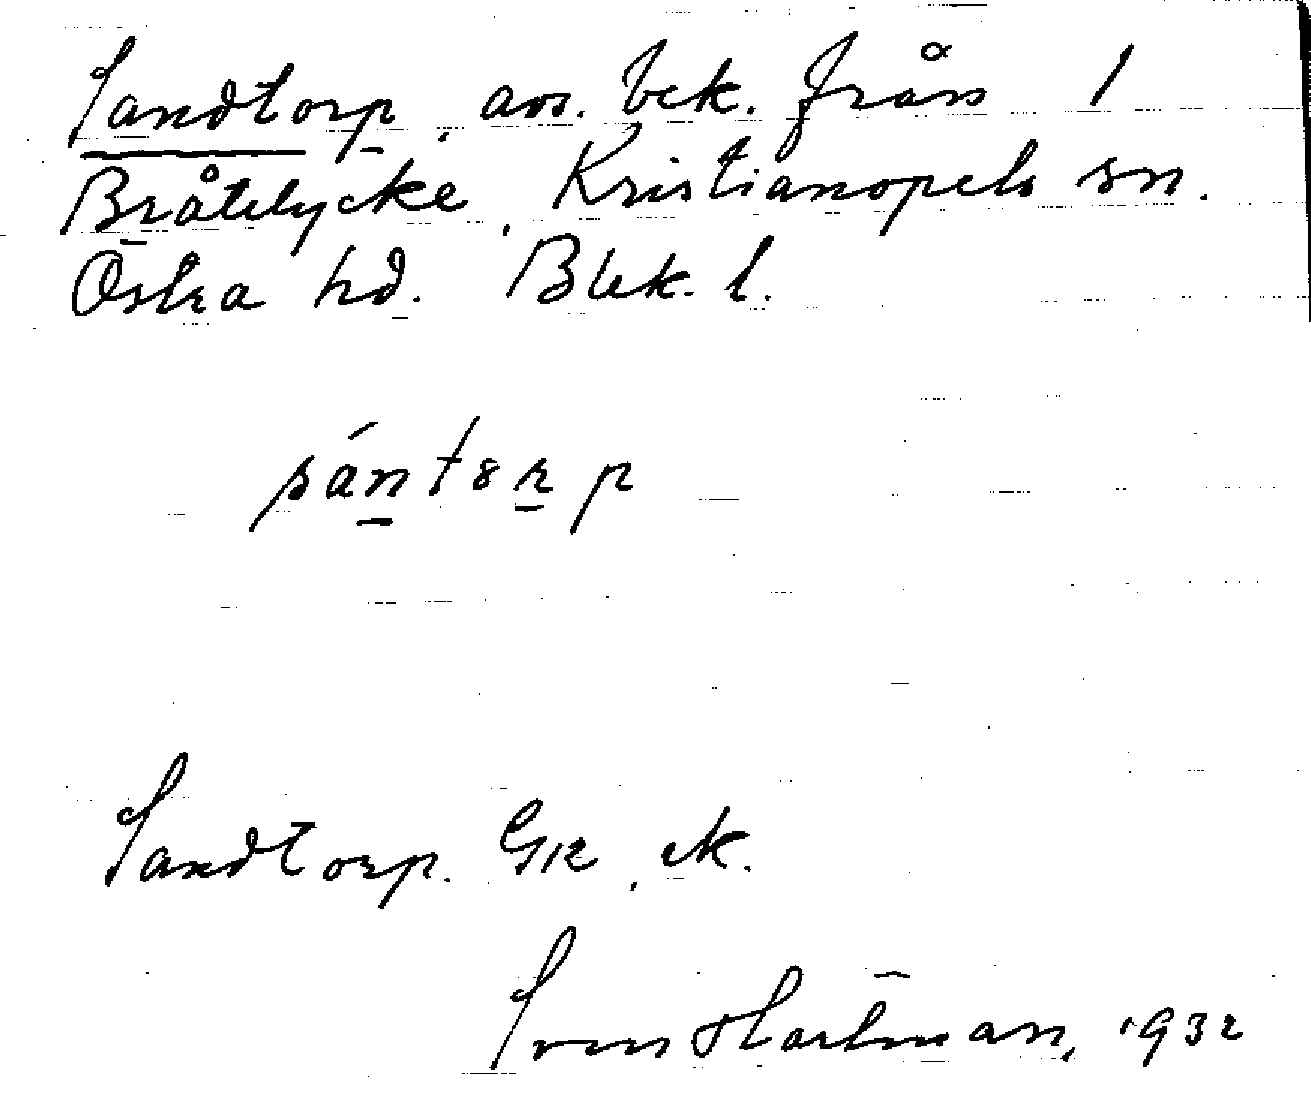 Sandtorp, avs. bek. från 1
Bråtelycke, Kristianopels sn.
Östra hd. Blek. l.
sántərp
Sandtorp. GK, ek.
Sven Hartman, 1932